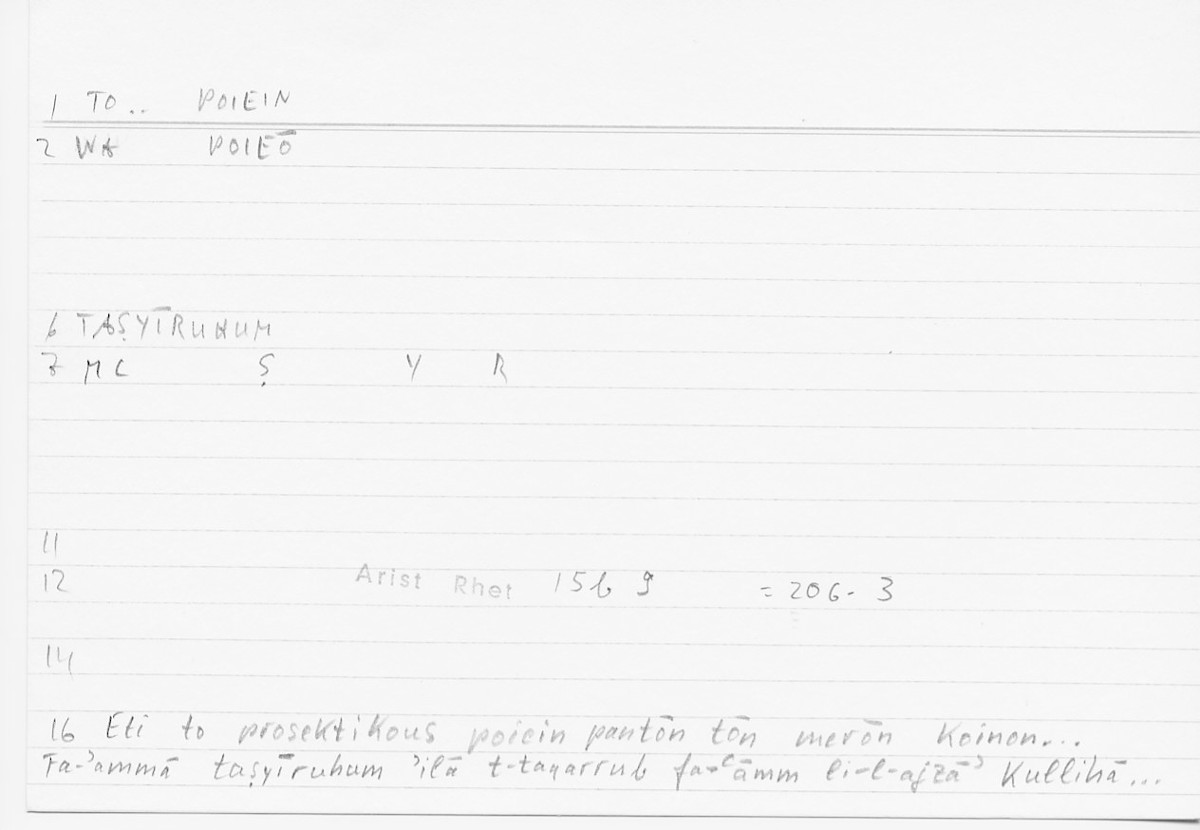 1 TO .. POIEIN
2 WA POIEŌ
6 TAṢYĪRUHUM
7 MC Ṣ Y R
11
12 Arist Rhet 15b 9 = 206-3
14
16 Eti to prosektikous poiein pantōn tōn merōn koinon...
Fa-ʾammā taṣyīruhum ʾilā t-taqarrub fa-ʿāmm li-l-ajzāʾ kullihā...